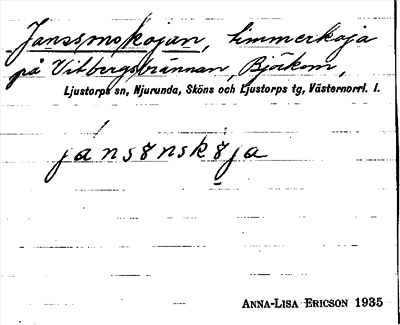 Janssmskojan, timmerkoja
på Vitbergsbrännan, Björkom,
Ljustorps sn, Njurunda, Sköns och Ljustorps tg, Västernorrl. l.
jánsɜnskɜja
ANNA-LISA ERICSON 1935